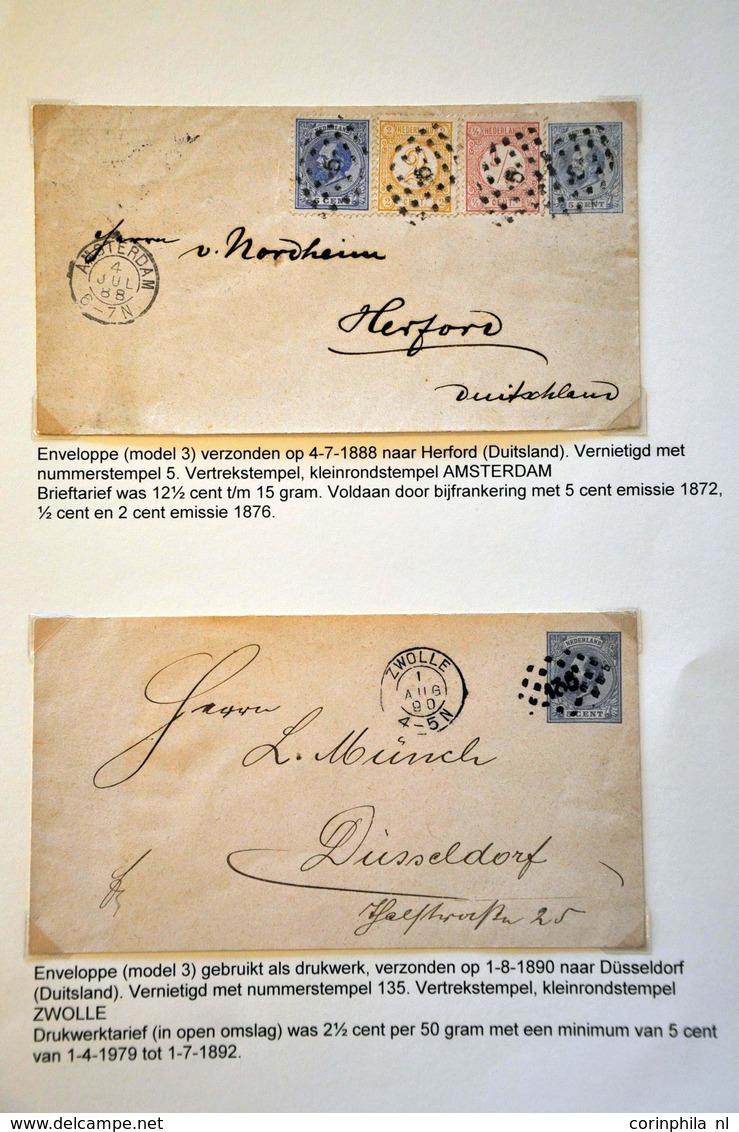 NEDERLAND
5 CENT
NEDERLAND
2
2 CENT 2
NEDERLAND
½
½ CENT ½
5 CENT
5
5
5
AMSTERDAM
4
JUL
88
6-7N
Herrn v. Nordheim
Herford
Duitschland
Enveloppe (model 3) verzonden op 4-7-1888 naar Herford (Duitsland). Vernietigd met
nummerstempel 5. Vertrekstempel, kleinrondstempel AMSTERDAM
Brieftarief was 12½ cent t/m 15 gram. Voldaan door bijfrankering met 5 cent emissie 1872,
½ cent en 2 cent emissie 1876.
NEDERLAND
5 CENT
ZWOLLE
1
AUG
90
4-5N
Herrn
L. Münch
Düsseldorf
Thalstraße 25
Enveloppe (model 3) gebruikt als drukwerk, verzonden op 1-8-1890 naar Düsseldorf
(Duitsland). Vernietigd met nummerstempel 135. Vertrekstempel, kleinrondstempel
ZWOLLE
Drukwerktarief (in open omslag) was 2½ cent per 50 gram met een minimum van 5 cent
van 1-4-1979 tot 1-7-1892.
delcampe.net
corinphila nl